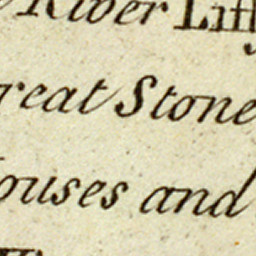 River Liff
reat Stone
ouses and